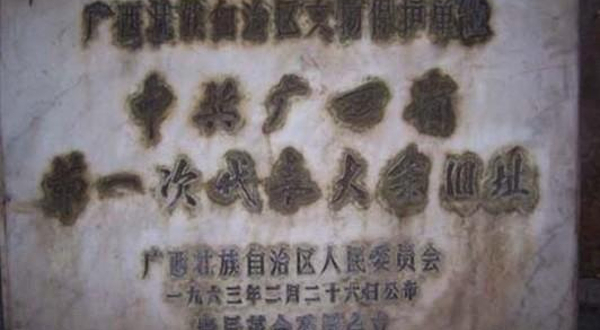 广西壮族自治区文物保护单位
中共广西省
第一次代表大会旧址
广西壮族自治区人民委员会
一九六三年二月二十六日公布